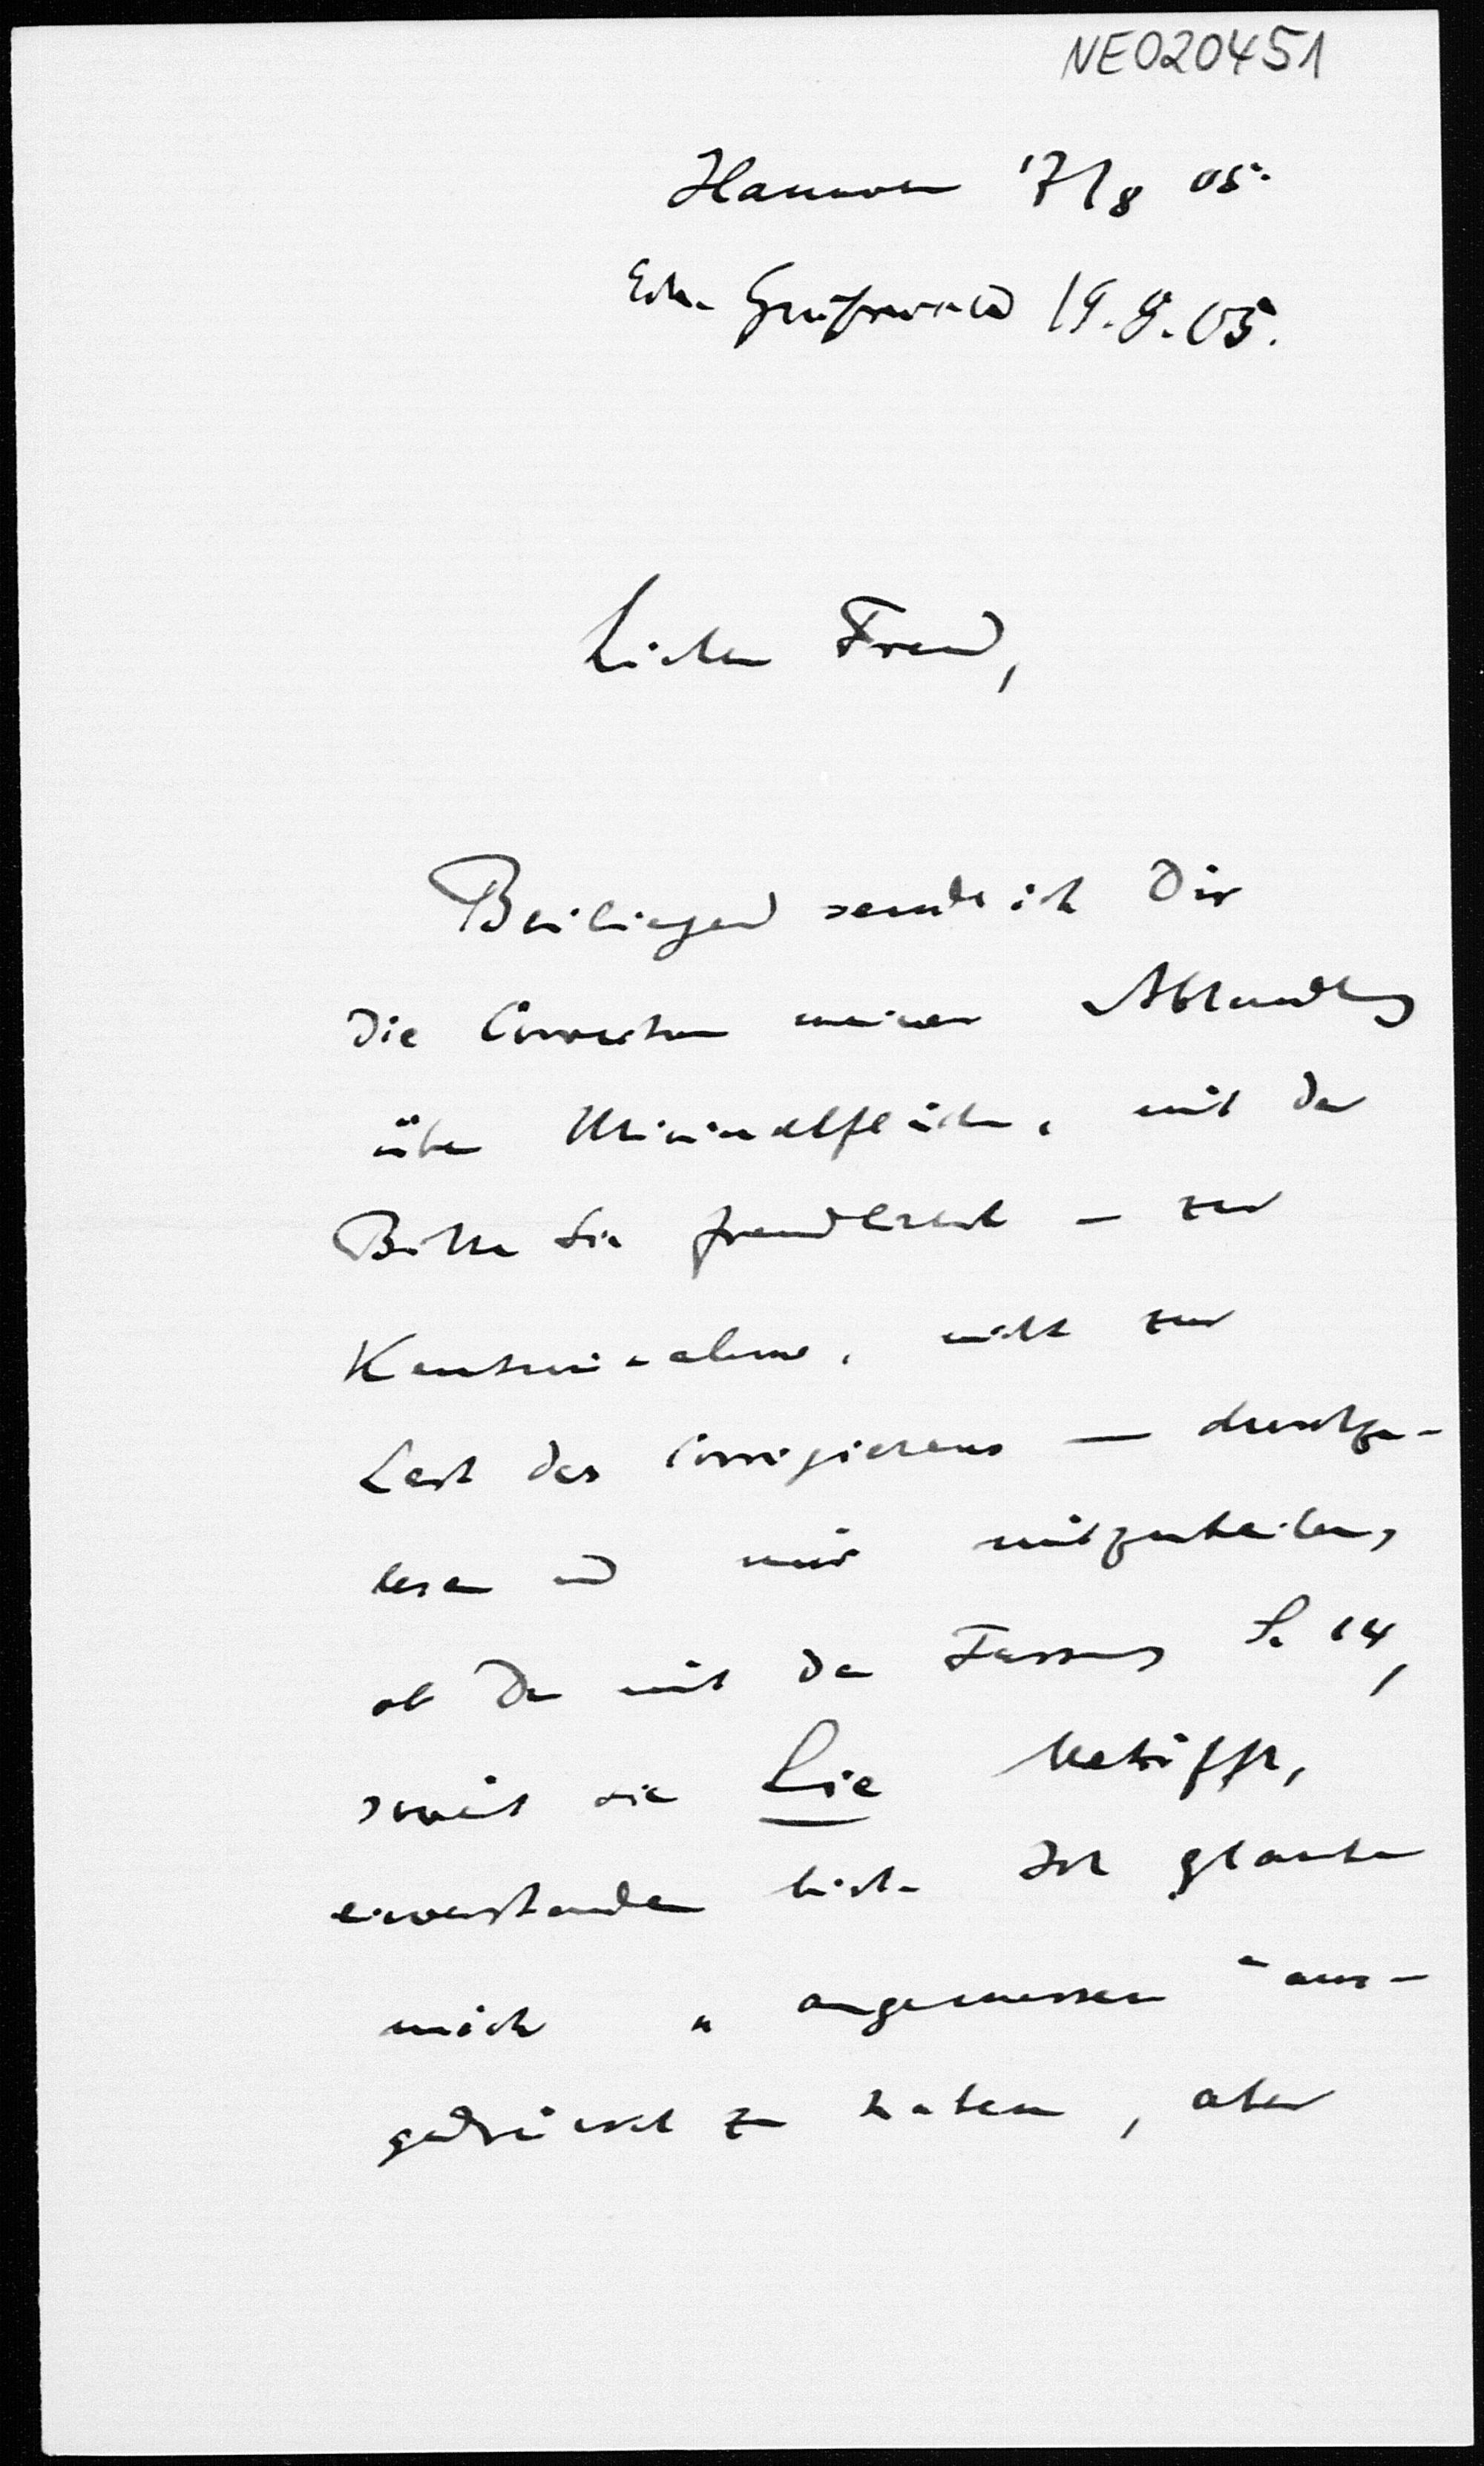 NE020451
Hannover 17/8 05.
Erh. Greifswald 19.8.05.
Lieber Freund,
Beiliegend sende ich Dir
die Correctur meiner Abhandlung
über Minimalflächen, mit der
Bitte sie freundlichst – zur
Kenntnisnahme, nicht zur
Last des Corrigierens — durchzu-
lesen und mir mitzutheilen,
ob Du mit der Fassung S. 14,
soweit sie Lie betrifft,
einverstanden bist. Ich glaube
mich "angemessen" aus-
gedrückt zu haben, aber